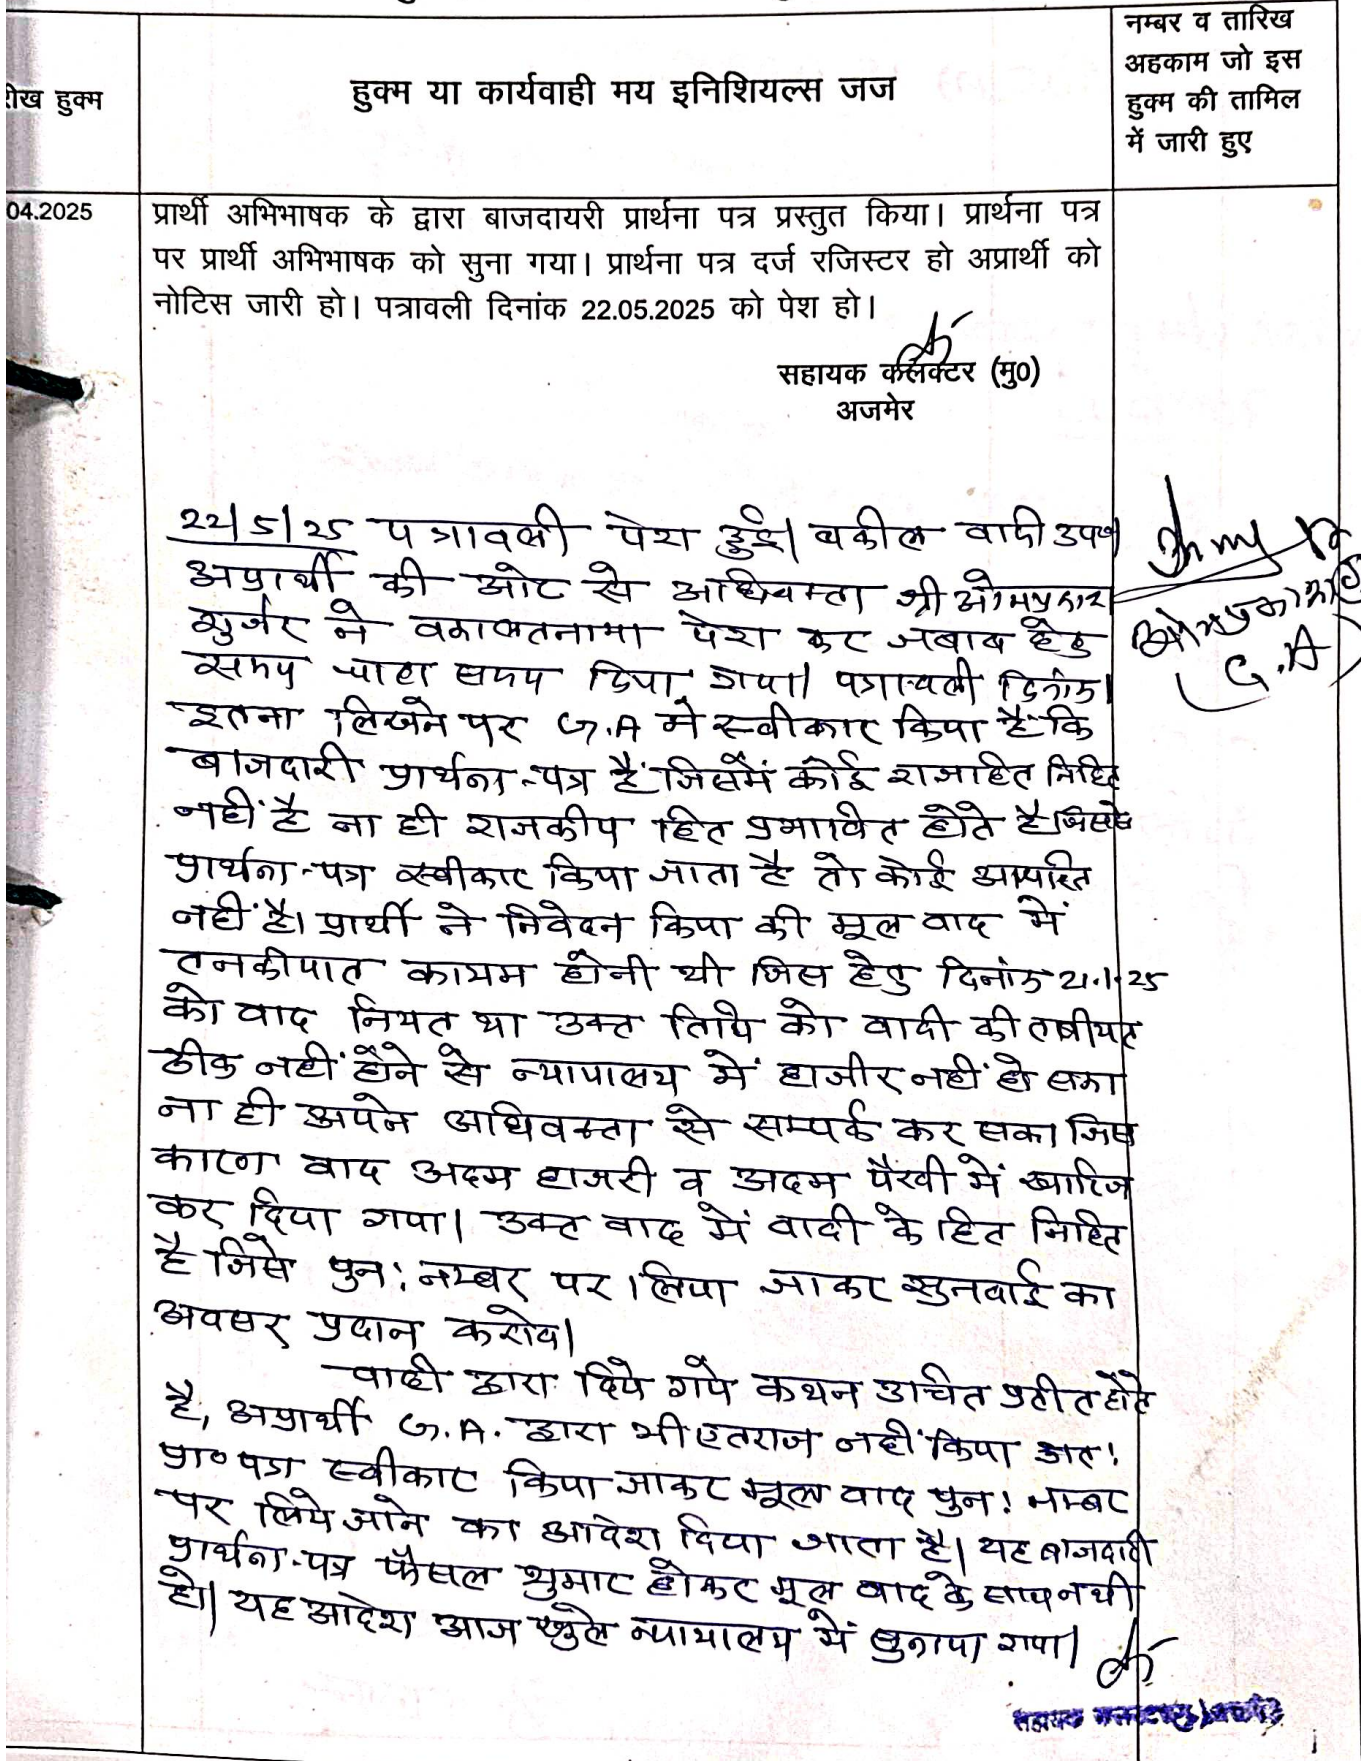 हुक्म या कार्यवाही मय इनिशियल्स जज
नम्बर व तारिख
अहकाम जो इस
हुक्म की तामिल
में जारी हुए
रीख हुक्म
04.2025
प्रार्थी अभिभाषक के द्वारा बाजदायरी प्रार्थना पत्र प्रस्तुत किया। प्रार्थना पत्र
पर प्रार्थी अभिभाषक को सुना गया। प्रार्थना पत्र दर्ज रजिस्टर हो अप्रार्थी को
नोटिस जारी हो। पत्रावली दिनांक 22.05.2025 को पेश हो।
सहायक कलेक्टर (मु0)
अजमेर
22/5/25 पत्रावली पेश हुई। वकील वादी उप०
अप्रार्थी की ओर से अधिवक्ता श्री ओमप्रकाश
गुर्जर ने वकालतनामा पेश कर जबाब हेतु
समय चाहा समय दिया गया। पत्रावली दिनांक।
इतना लिखने पर G.A ने स्वीकार किया है कि
बाजदारी प्रार्थना-पत्र है जिसमें कोई राजहित निहित
नहीं है ना ही राजकीय हित प्रभावित होते है जिससे
प्रार्थना-पत्र स्वीकार किया जाता है तो कोई आपत्ति
नहीं है। प्रार्थी ने निवेदन किया की मूल वाद में
तनकीयात कायम होनी थी जिस हेतु दिनांक 21.1.25
को वाद नियत था उक्त तिथि को वादी की तबीयत
ठीक नहीं होने से न्यायालय में हाजीर नहीं हो सका
ना ही अपने अधिवक्ता से सम्पर्क कर सका जिस
कारण वाद अदम हाजरी व अदम पैरवी में खारिज
कर दिया गया। उक्त वाद में वादी के हित निहित
है जिसे पुन: नम्बर पर लिया जाकर सुनवाई का
अवसर प्रदान करावे।
वादी द्वारा दिये गये कथन उचित प्रतीत होते
है, अप्रार्थी G.A. द्वारा भी एतराज नहीं किया अत:
प्रा० पत्र स्वीकार किया जाकर मूल वाद पुन: नम्बर
पर लिये जाने का आदेश दिया जाता है। यह बाजदारी
प्रार्थना-पत्र फैसल शुमार होकर मूल वाद के साथ नथी
हो। यह आदेश आज खुले न्यायालय में सुनाया गया।
G.A
सहायक